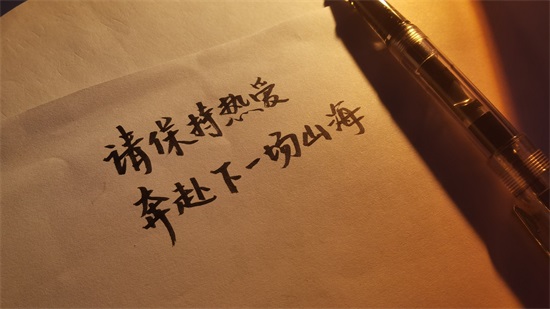 请保持热爱
奔赴下一场山海